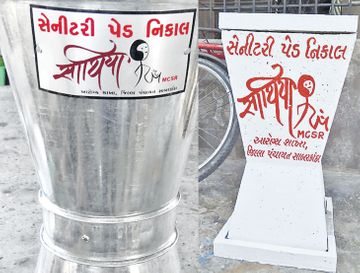 સેનીટરી પેડ નિકાલ
સાથિયા
MCSR
આરોગ્ય શાખા, જિલ્લા પંચાયત સાબરકાંઠા
સેનીટરી પેડ નિકાલ
સાથિયા
MCSR
આરોગ્ય શાખા,
જિલ્લા પંચાયત સાબરકાંઠા